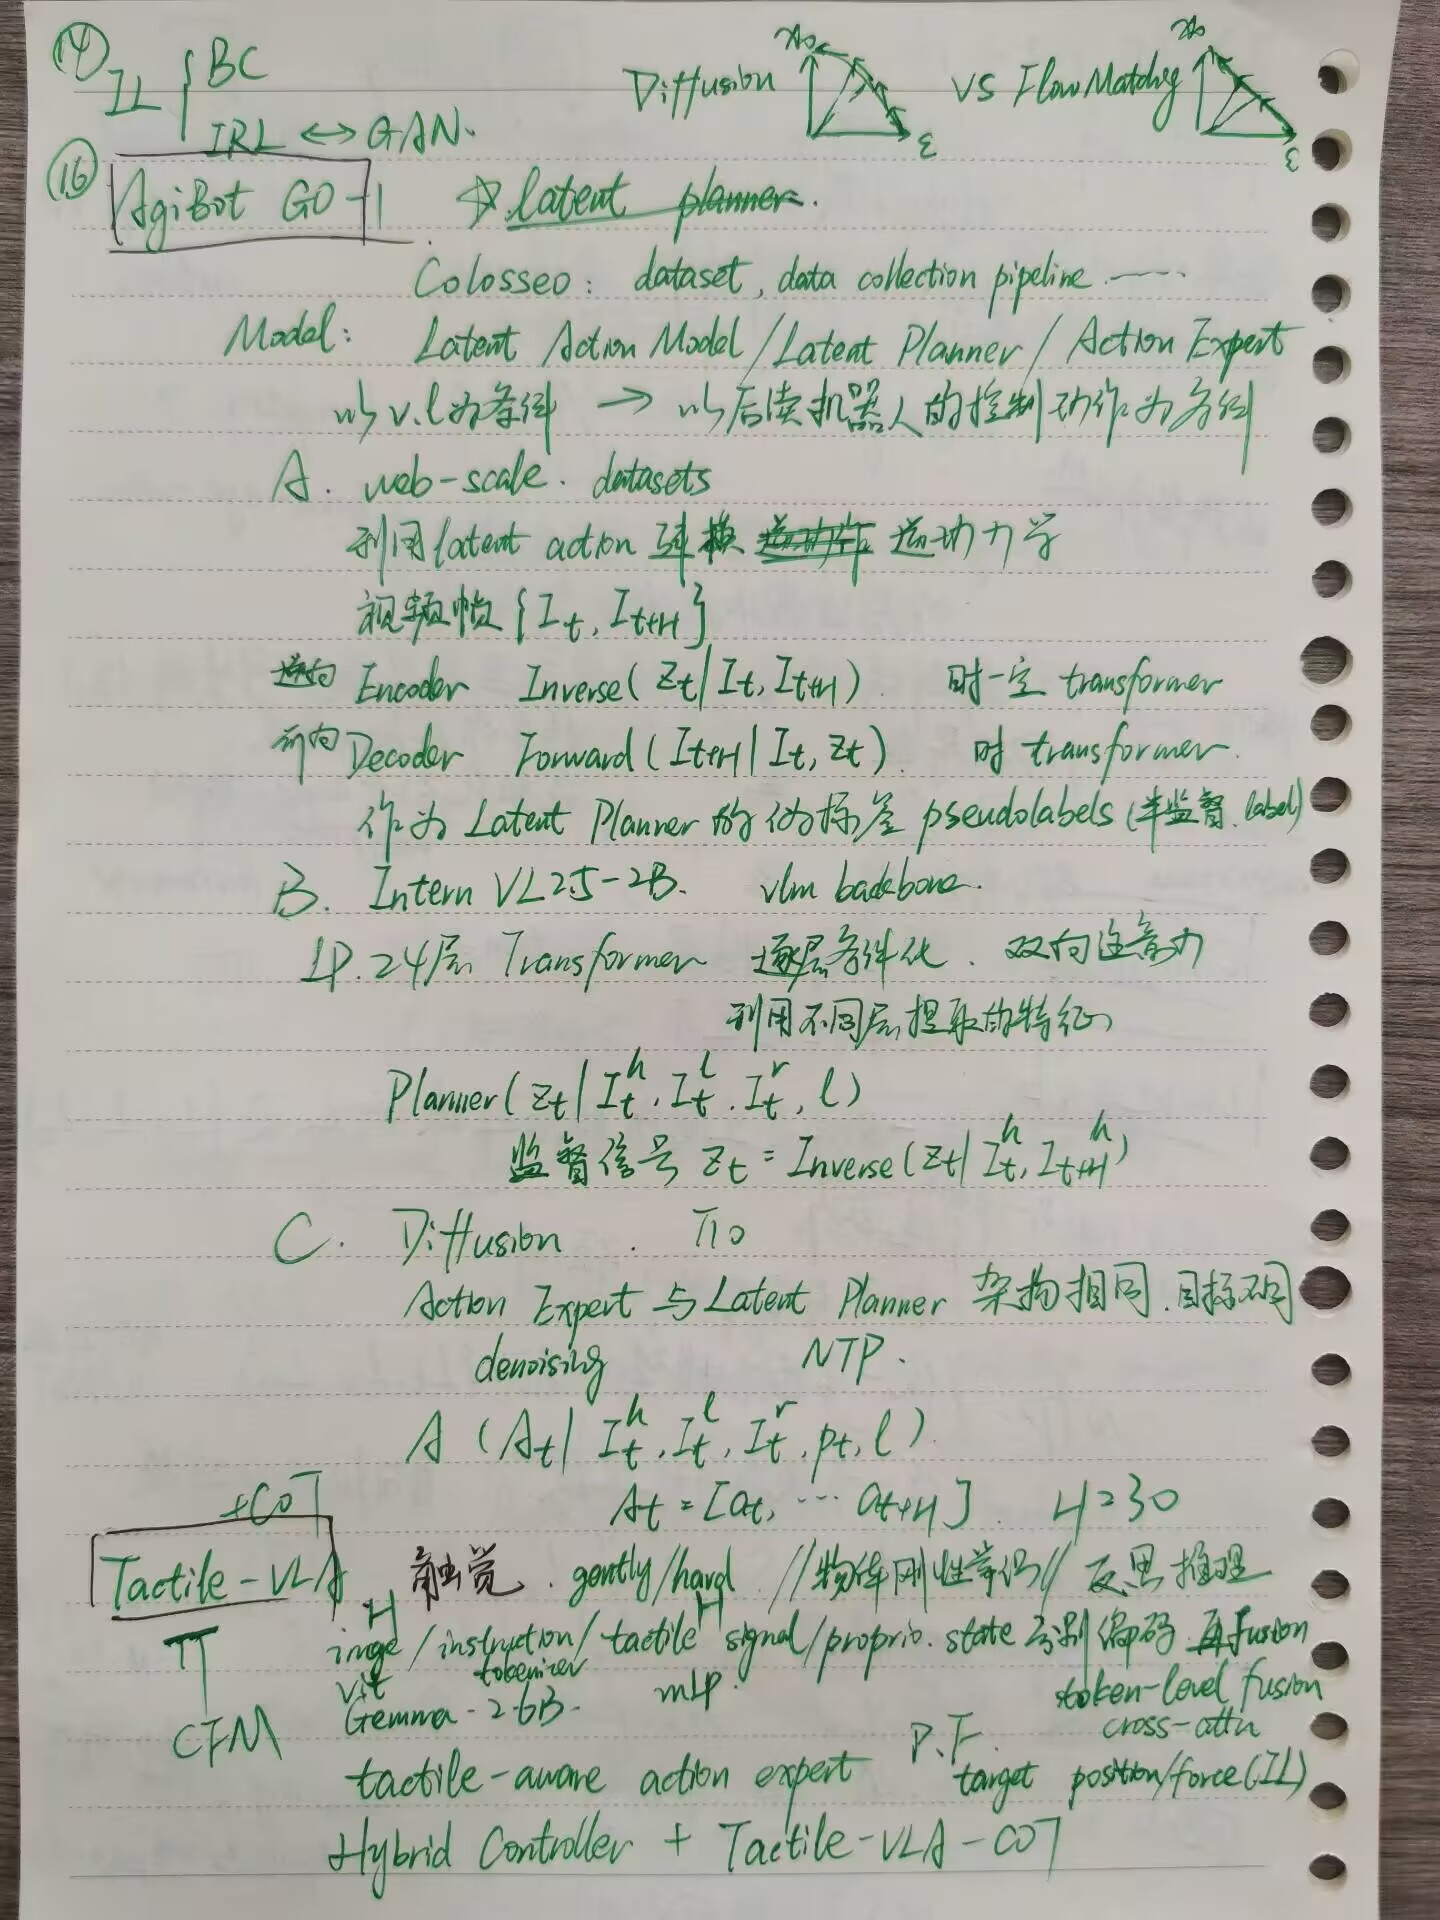 14 IL { BC
IRL ↔ GAN.
Diffusion x₀ ε VS Flow Matching x₀ ε
16 AgiBot GO-1 ☆ latent planner.
Colosseo: dataset, data collection pipeline ……
Model: Latent Action Model / Latent Planner / Action Expert
以 v.l 为条件 → 以后续机器人的控制动作为条件
A. web-scale. datasets
利用 latent action 建模 运动力学
视频帧 {I_t, I_{t+H}}
逆向 Encoder Inverse(z_t | I_t, I_{t+H}). 时-空 transformer
前向 Decoder Forward(I_{t+H} | I_t, z_t). 时 transformer.
作为 Latent Planner 的伪标签 pseudolabels (半监督. label)
B. Intern VL2.5-2B. vlm backbone.
LP. 24层 Transformer 逐层条件化. 双向注意力
利用不同层提取的特征
Planner(z_t | I_t^h, I_t^l, I_t^r, l)
监督信号 z_t = Inverse(z_t | I_t^h, I_{t+H}^h)
C. Diffusion. π0
Action Expert 与 Latent Planner 架构相同. 目标不同
denoising NTP.
A (A_t | I_t^h, I_t^l, I_t^r, p_t, l).
+COT A_t = [a_t, … a_{t+H}]. H=30
Tactile-VLA. 触觉. gently/hard. // 物体刚性常识 // 反思推理
π H H
image / instruction / tactile signal / proprio. state 分别编码 再 fusion
vit tokenizer mlp. token-level fusion
Gemma-2.6B. cross-attn
CFM P.F.
tactile-aware action expert target position/force (IL)
Hybrid Controller + Tactile-VLA-COT